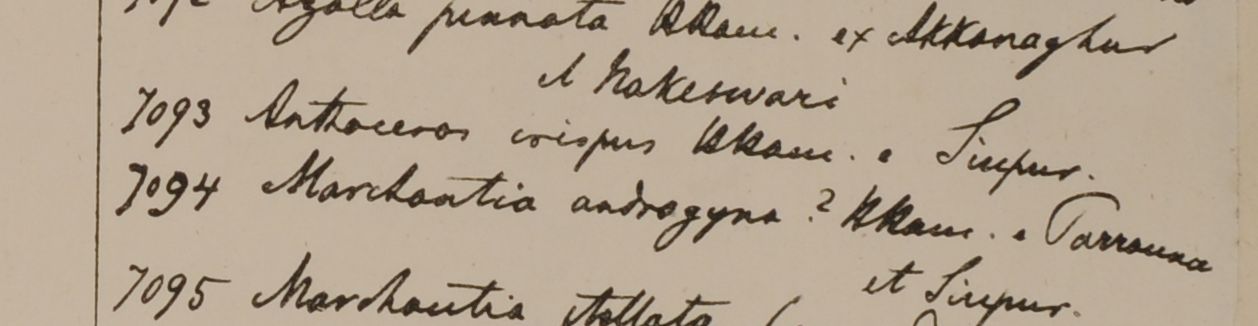 Azolla pinnata HHam. ex Akkanaghur
et Nakeswari
7093 Anthoceros crispus HHam. e Sirpur.
7094 Marchantia androgyna? HHam. e Parrouna
et Sirpur.
7095 Marchantia stellata